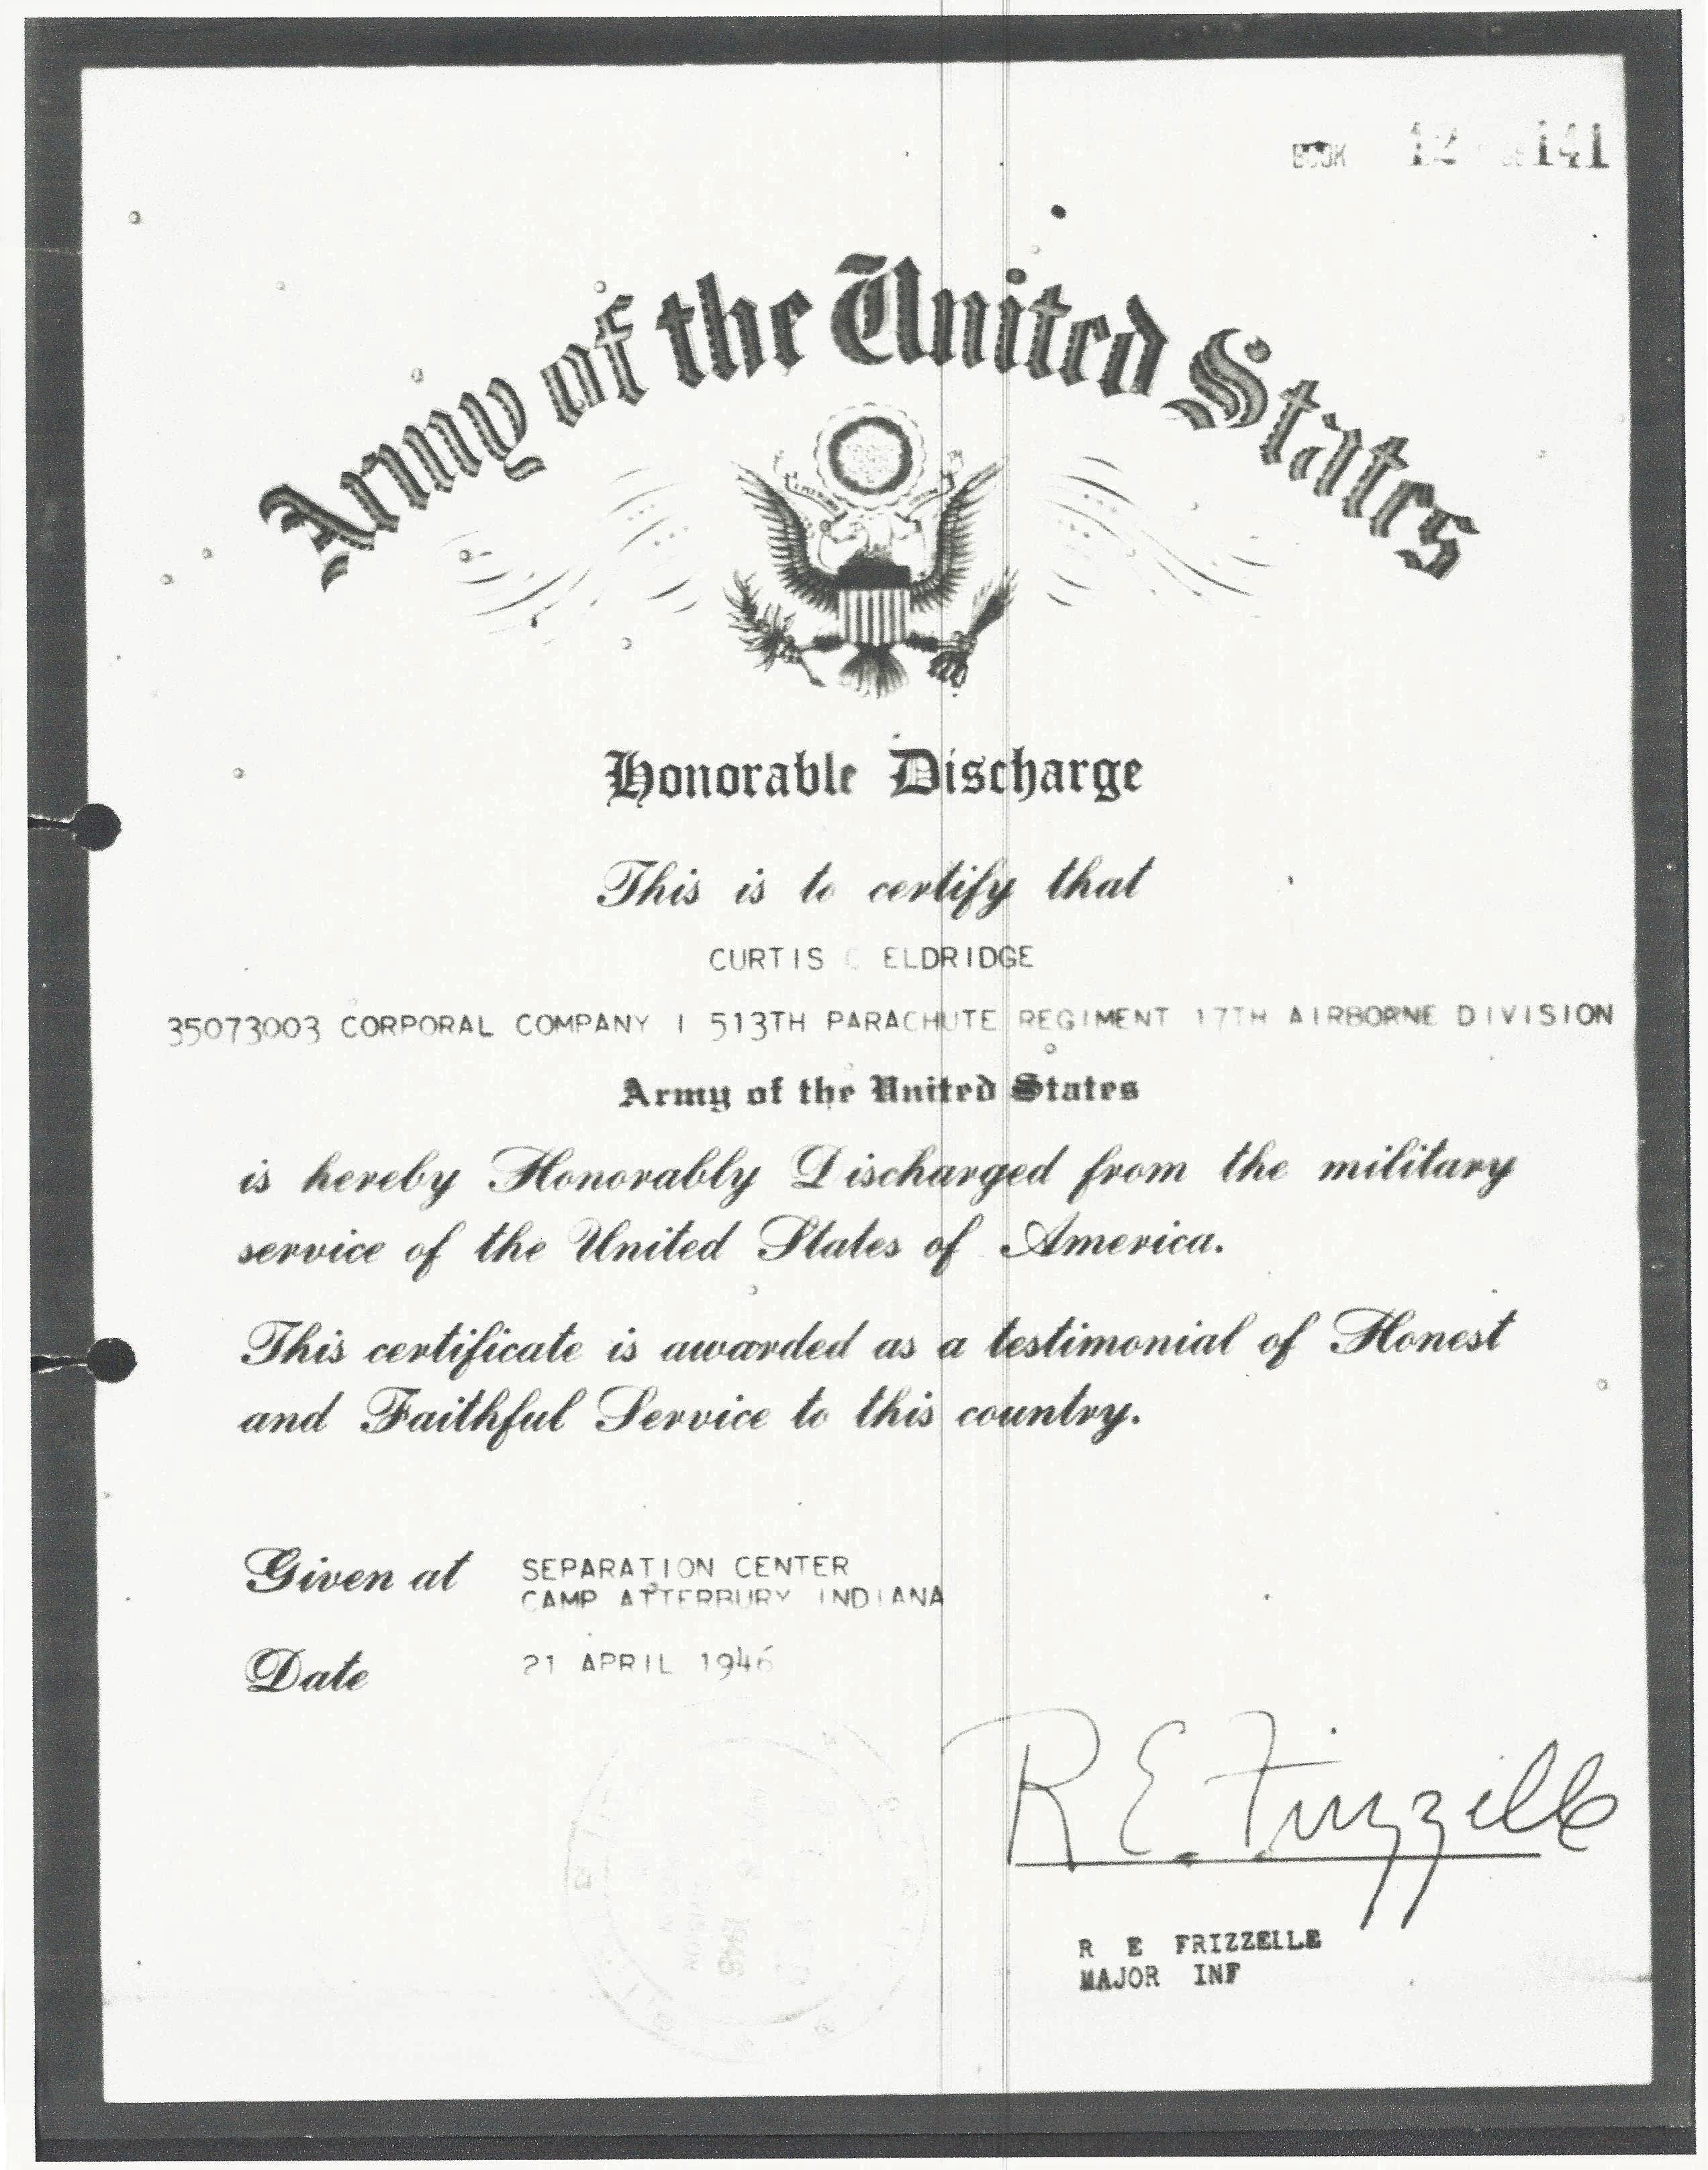 BOOK 12 141
Army of the United States
Honorable Discharge
This is to certify that
CURTIS C ELDRIDGE
35073003 CORPORAL COMPANY I 513TH PARACHUTE REGIMENT 17TH AIRBORNE DIVISION
Army of the United States
is hereby Honorably Discharged from the military
service of the United States of America.
This certificate is awarded as a testimonial of Honest
and Faithful Service to this country.
Given at SEPARATION CENTER
CAMP ATTERBURY INDIANA
Date 21 APRIL 1946
R E. Frizzelle
R E FRIZZELLE
MAJOR INF